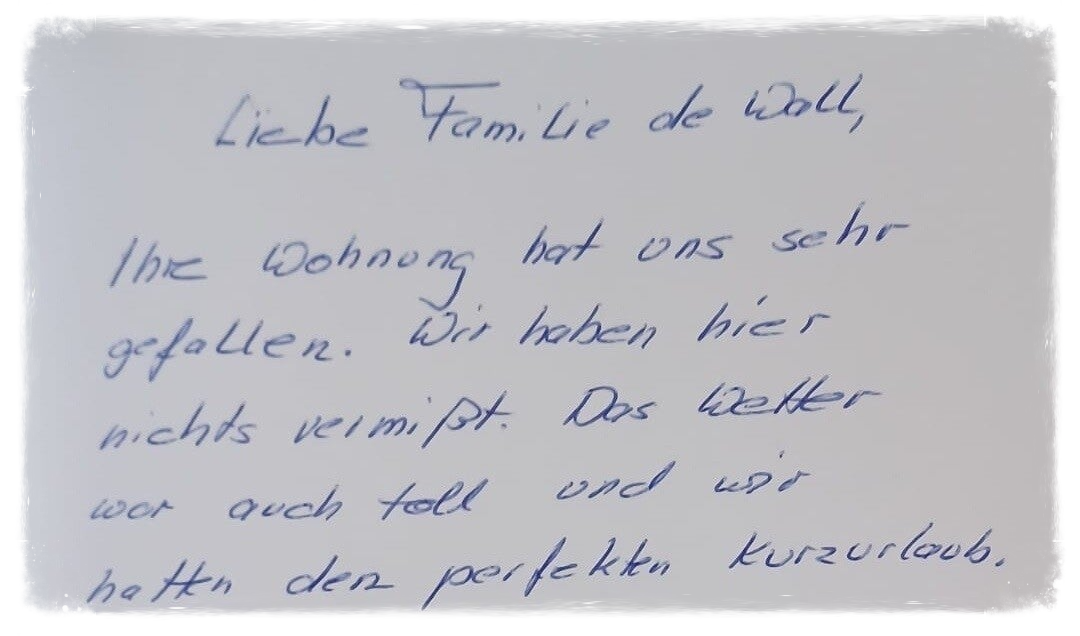 Liebe Familie de Wall,
Ihre Wohnung hat uns sehr
gefallen. Wir haben hier
nichts vermißt. Das Wetter
war auch toll und wir
hatten den perfekten Kurzurlaub.